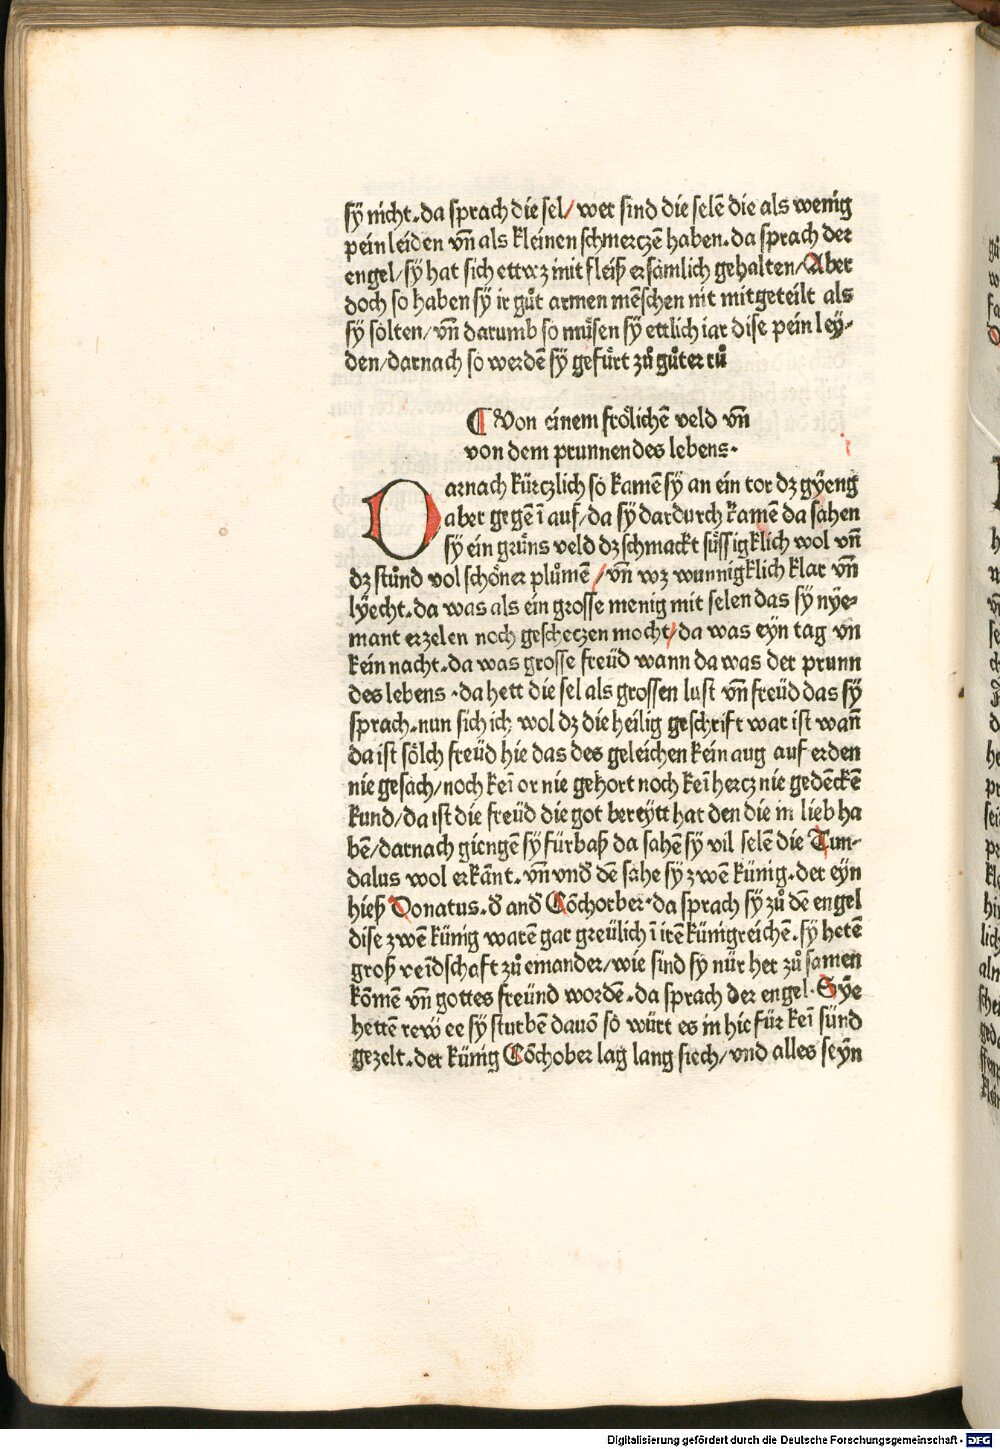 sÿ nicht. da sprach die sel/ wer sind die selē die als wenig
pein leiden vn̄ als kleinen schmerczē haben. da sprach der
engel/ sÿ hat sich ettwz mit fleiß ersämlich gehalten/ Aber
doch so haben sÿ ir gůt armen mēschen nit mitgeteilt als
sÿ solten/ vn̄ darumb so můsen sÿ ettlich iar dise pein ley⸗
den/ darnach so werdē sÿ gefürt zů gůter rů
¶ Von einem frölichē veld vn̄
von dem prunnen des lebens.
Darnach kürczlich so kamē sÿ an ein tor dz gyeng
aber gegē ī auf/ da sÿ dardurch kamē da sahen
sÿ ein grůns veld dz schmackt süssigklich wol vn̄
dz stůnd vol schöner plůmē/ vn̄ wz wunnigklich klar vn̄
lÿecht. da was als ein grosse menig mit selen das sÿ nye⸗
mant erzelen noch gescheczen mocht/ da was eÿn tag vn
kein nacht. da was grosse freüd wann da was der prunn
des lebens. da hett die sel als grossen lust vn̄ freüd das sÿ
sprach. nun sich ich wol dz die heilig geschrift war ist wan̄
da ist sölch freüd hie das des geleichen kein aug auf erden
nie gesach/ noch keī or nie gehort noch keī hercz nie gedēckē
kund/ da ist die freüd die got bereÿtt hat den die in lieb ha
bē/ darnach giengē sÿ fürbaß da sahē sÿ vil selē die Tun⸗
dalus wol erkāt. vn̄ vnd̄ dē sahe sÿ zwē künig. der eÿn
hieß Donatus. d̄ and̄ Cōchorber. da sprach sÿ zů dē engel
dise zwē künig warē gar greülich ī irē künigreichē. sÿ hetē
groß veīdschaft zů einander/ wie sind sÿ nůr her zů samen
kōmē vn̄ gottes freünd wordē. da sprach der engel. Sÿe
hettē rew̄ ee sÿ sturbē dauō so würt es in hie für keī sünd
gezelt. der künig Cōchober lag lang siech/ vnd alles seÿn
Digitalisierung gefördert durch die Deutsche Forschungsgemeinschaft - DFG